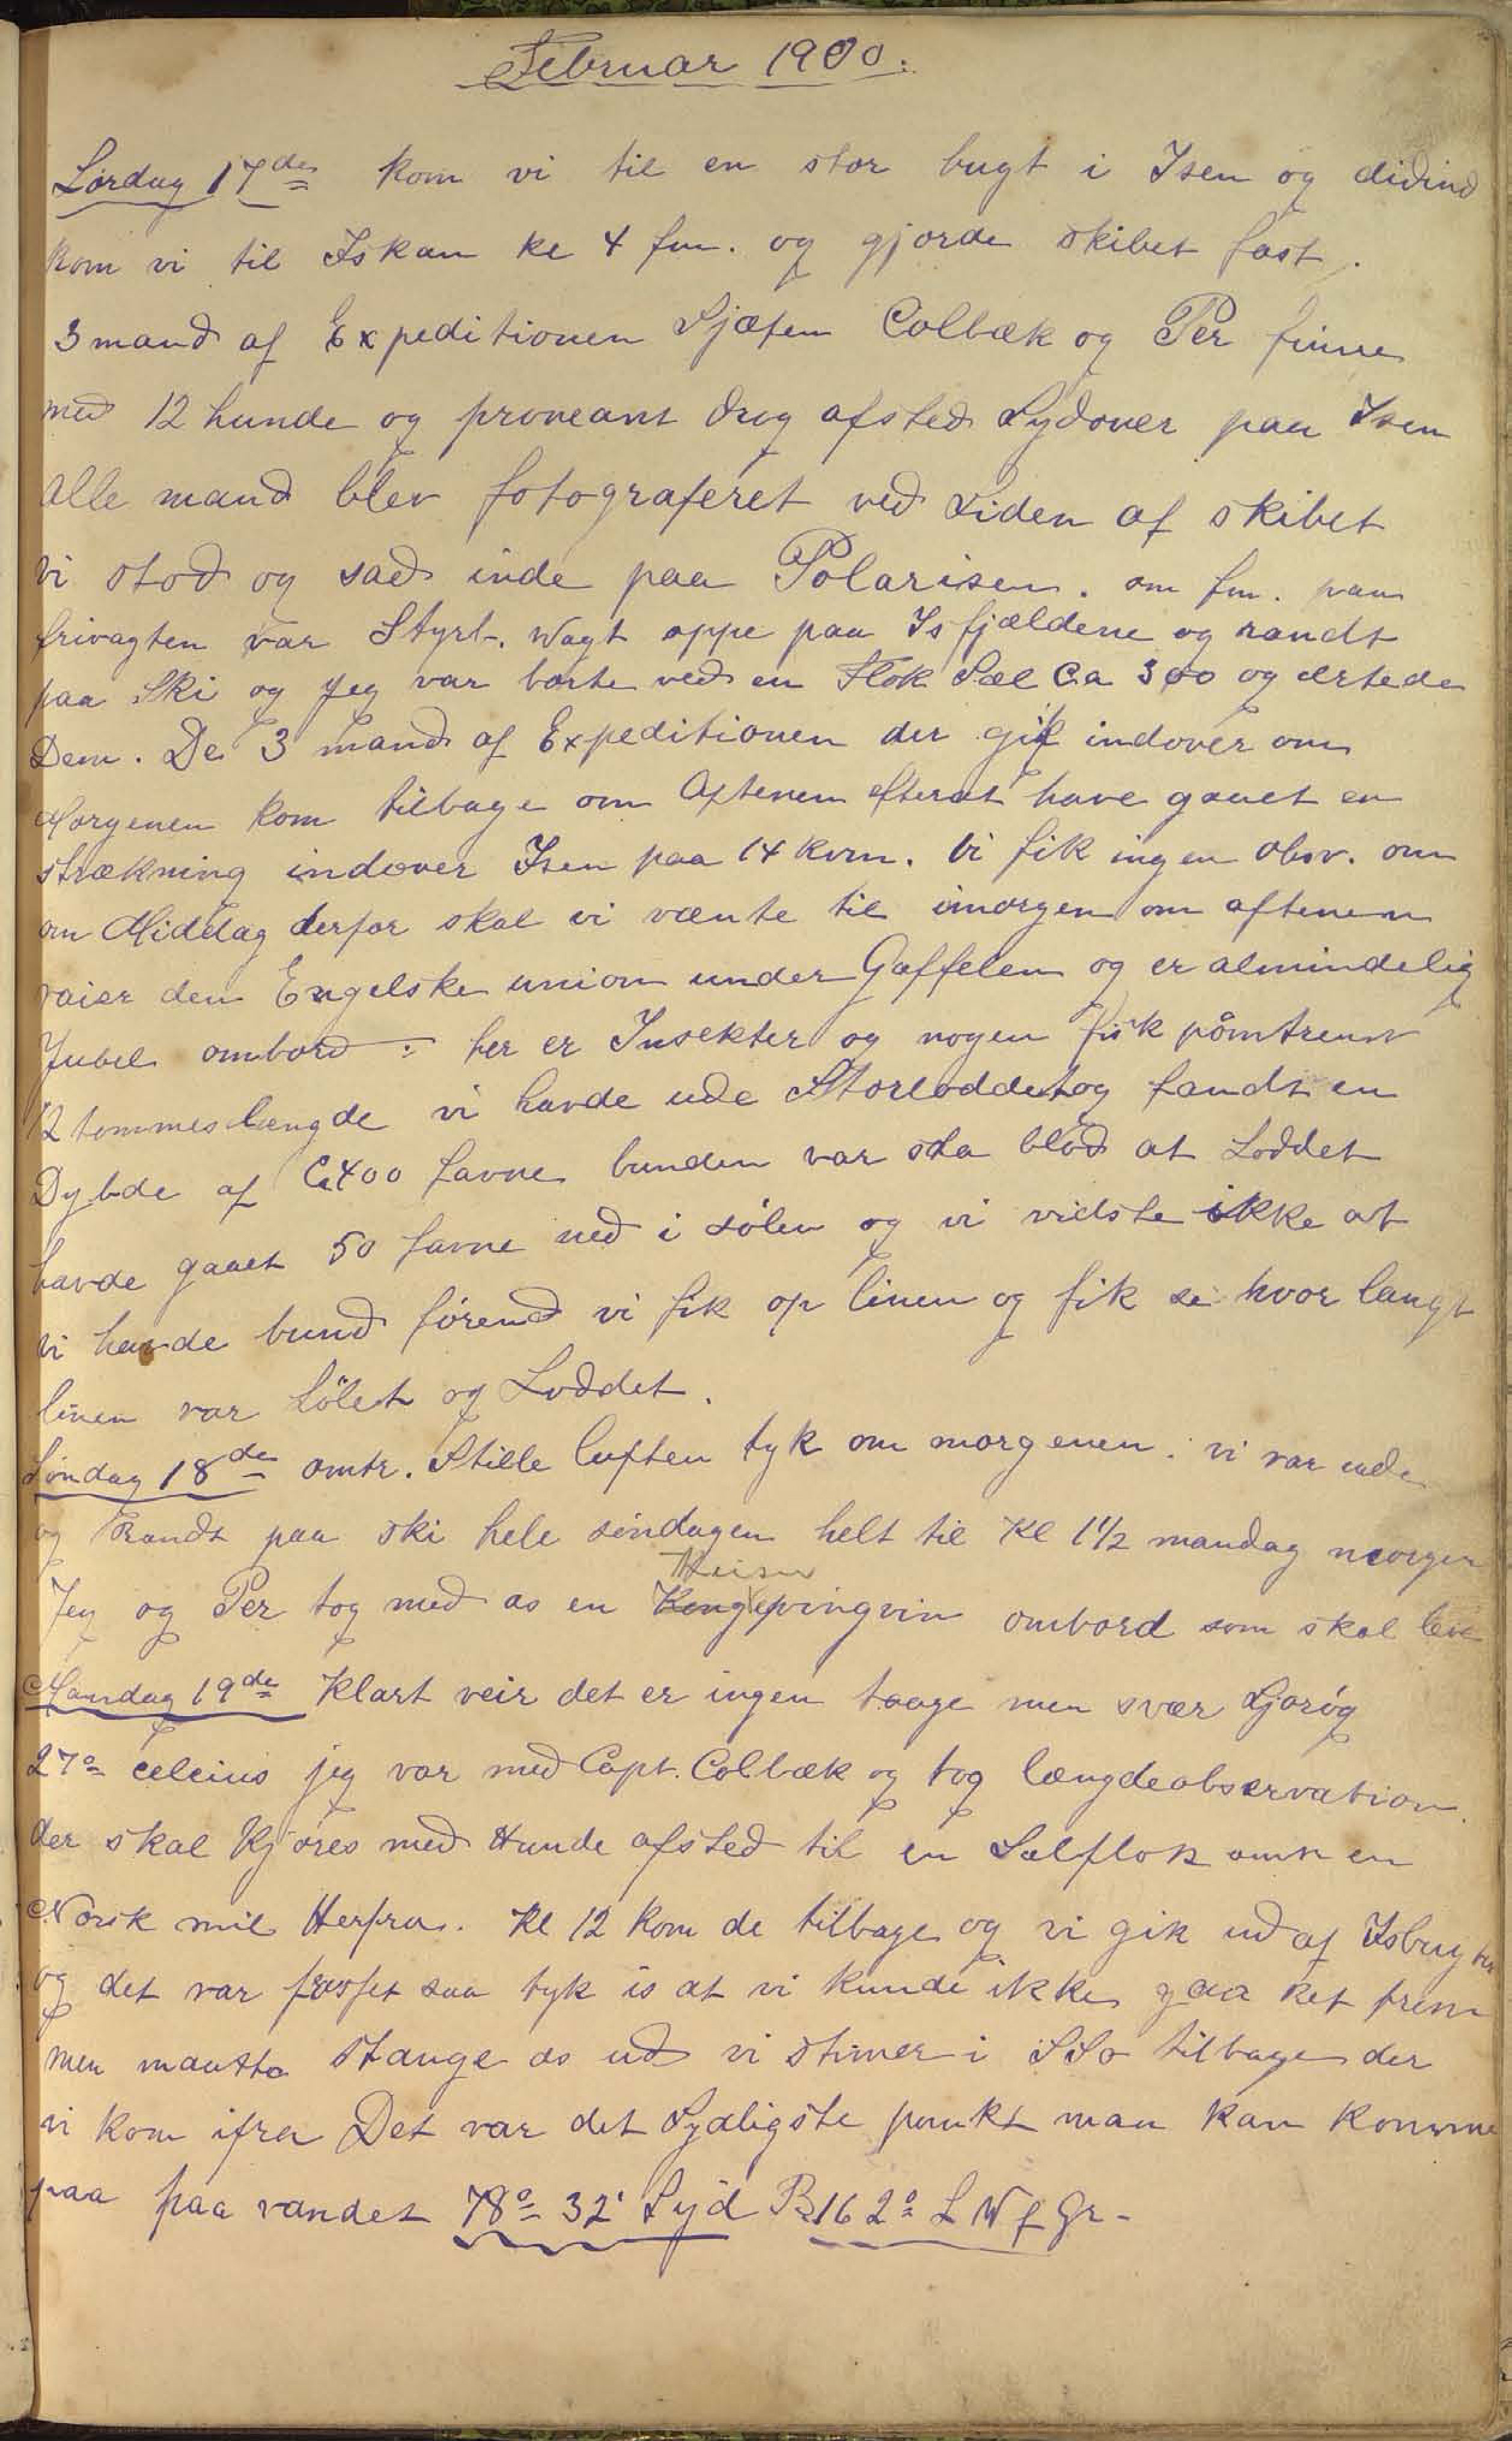 Februar 1900.
Lørdag 17de kom vi til en stor bugt i Isen og didind
kom vi til Iskan kl 4 fm. og gjorde skibet fast.
3 mand af Expeditionen Sjæfen Colbæk og Per finne
med 12 hunde og proveant drog afsted Sydover paa Isen
alle mand blev fotograferet ved Siden af skibet
vi stod og sad inde paa Polarisen. om fm. paa
frivagten var Styrb. Wagt oppe paa Isfjældene og randt
paa Ski og Jeg var borte ved en Flok Sæl Ca 300 og ærtede
Dem. De 3 mand af Expeditionen der gik indover om
Morgenen kom tilbage om Aftenen efterat have gaaet en
strækning indover Isen paa 14 kvm. Vi fik ingen obsv. om
om Middag derfor skal vi vænte til imorgen om aftenen
vaier den Engelske union under Gaffelen og er almindelig
Jubel ombord : her er Insekter og nogen fisk påmtrent
12 tommes længde vi havde ude Storloddet og fandt en
Dybde af Ca 400 favne bunden var saa blød at Loddet
havde gaaet 50 favne ned i sølen og vi vidste ikke at
vi havde bund førend vi fik op linen og fik se hvor langt
linen var Sølet og Loddet.
Søndag 18de omtr. Stille luften tyk om morgenen. vi var ude
og Randt paa ski hele søndagen helt til Kl 1 1/2 mandag morgen
Keiser
Jeg og Per tog med os en Kongepingvin ombord som skal leve
Mandag 19de Klart veir det er ingen taage men svær Sjorøg
27° celcius jeg var med Capt. Colbæk og tog længdeobservation
der skal Kjøres med Hunde afsted til en Sælflok omtr en
Norsk mil Herfra. Kl 12 kom de tilbage og vi gik ud af Isbugten
og det var frosset saa tyk is at vi kunde ikke gaa ret frem
men maatte Stange os ud vi stimer i SSo tilbage der
vi kom ifra Det var det Sydligste punkt man kan komme
paa paa vandet 78° 32' Syd B. 162° L W f Gr-